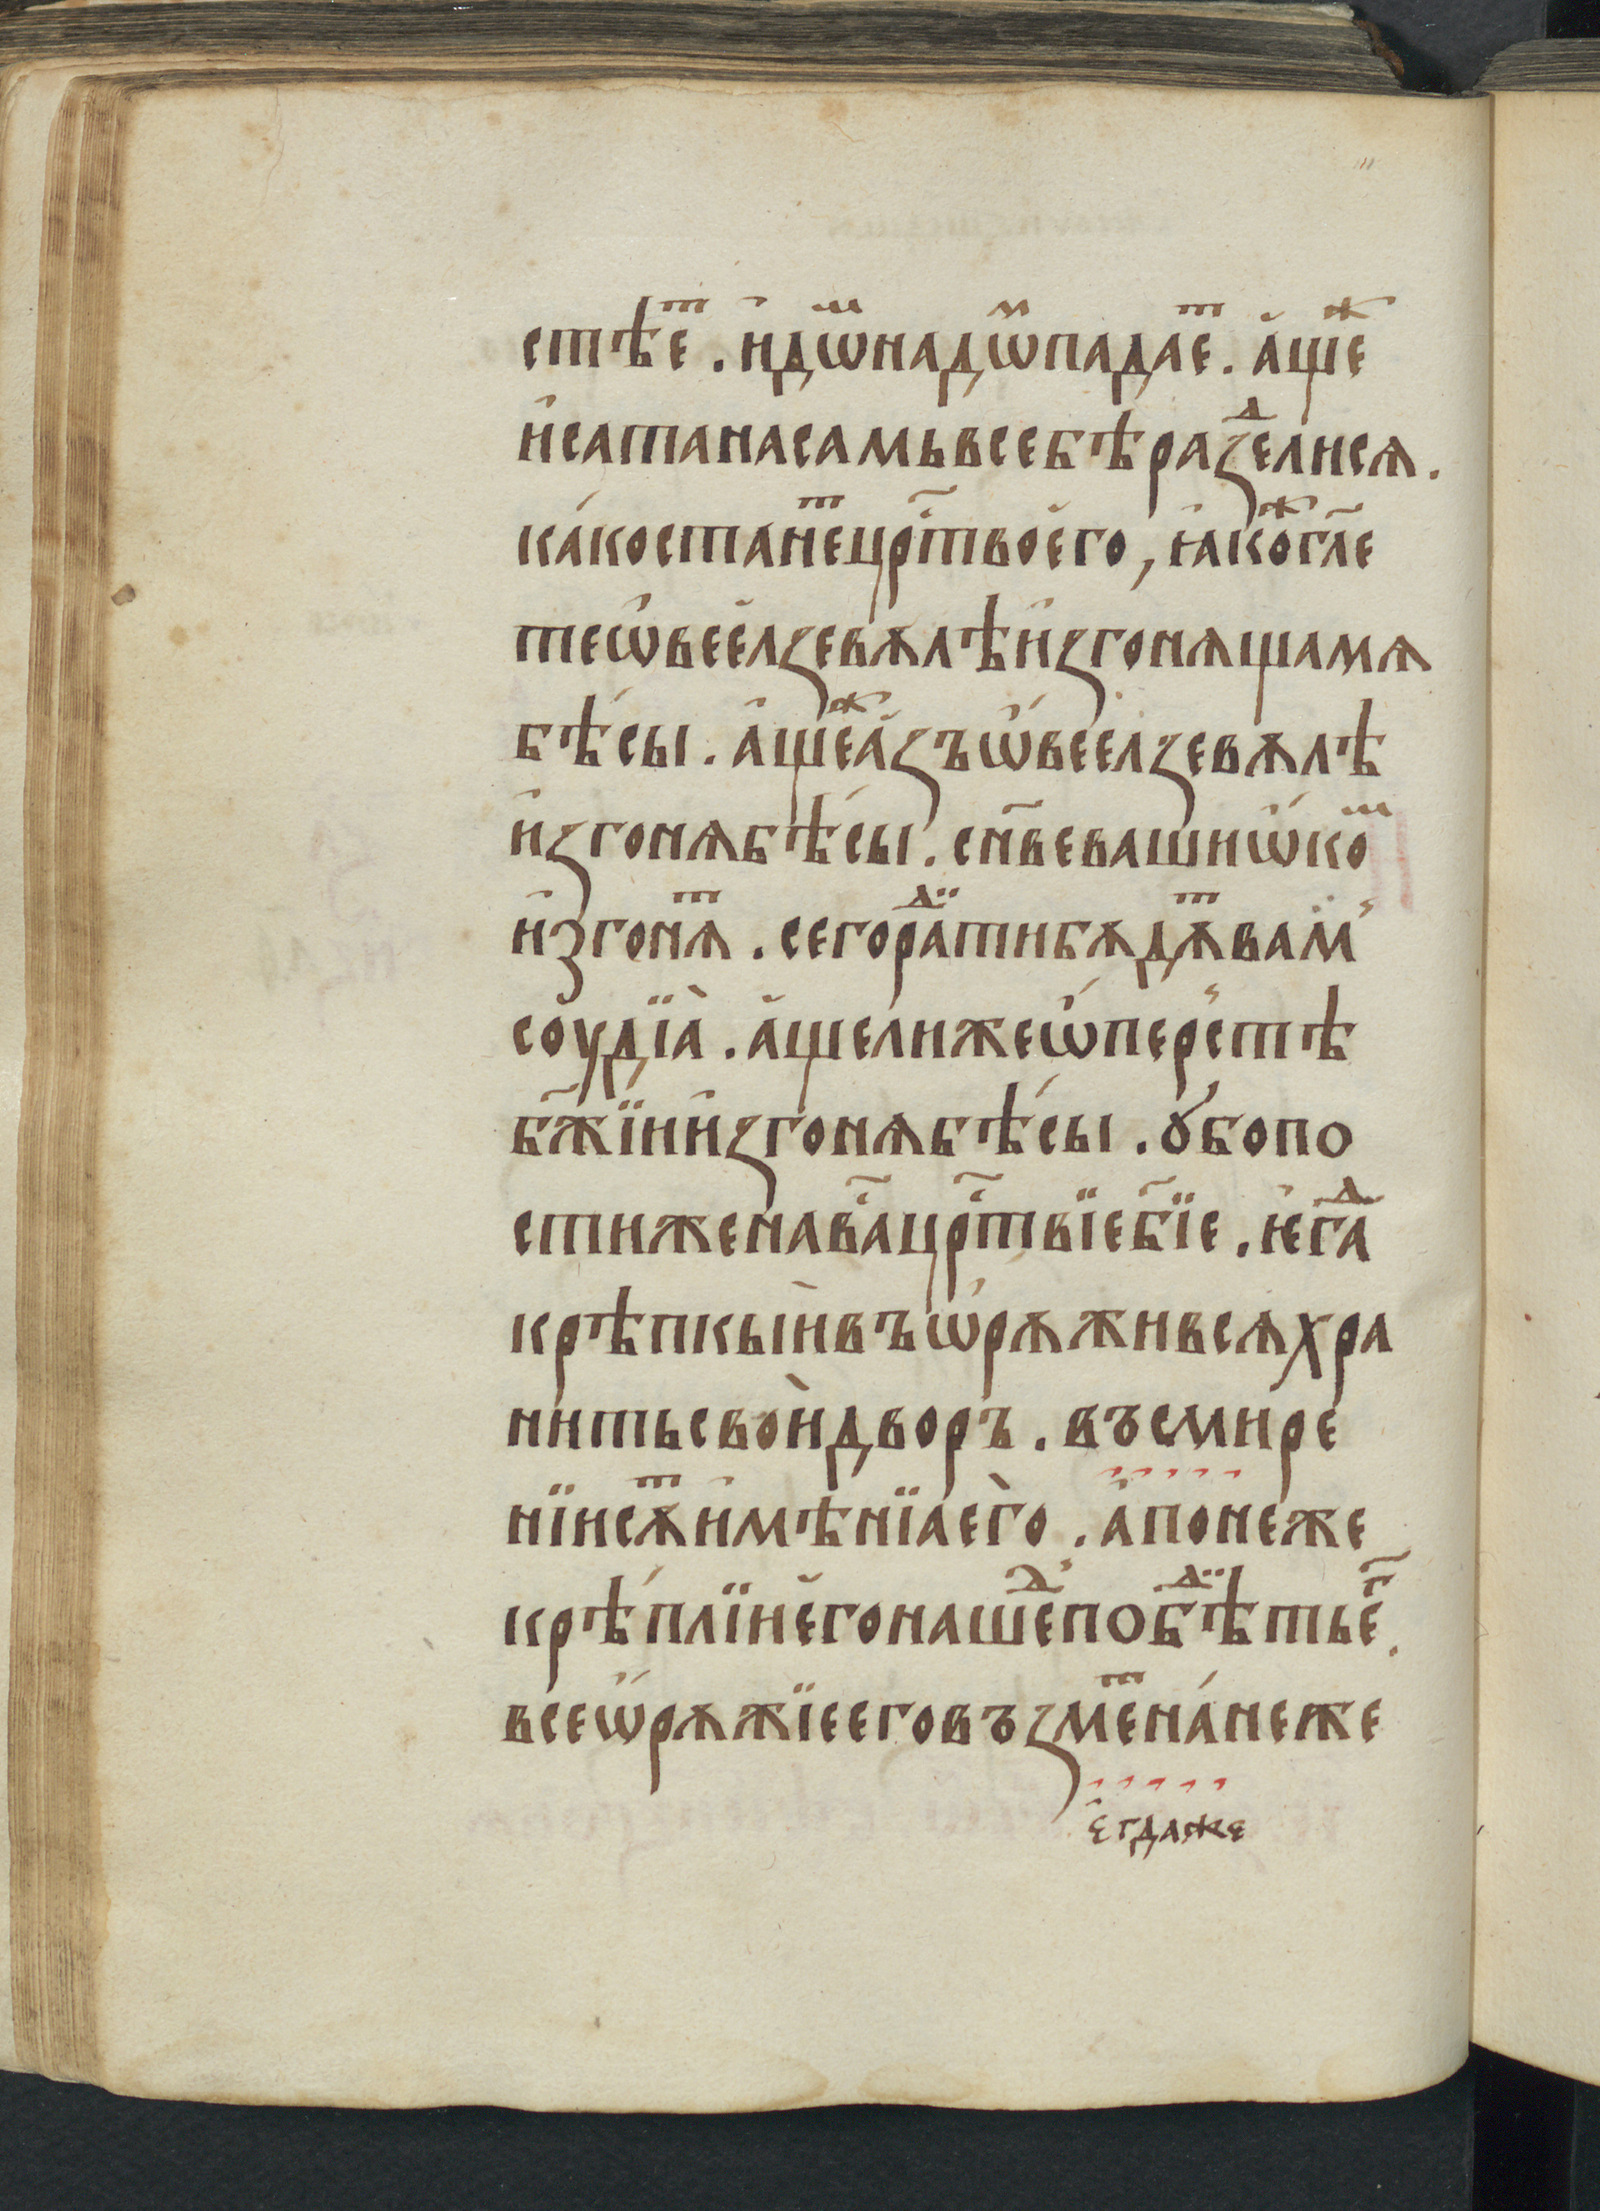 стѣеⷮ҇ . и҆дѡⷨнадѡⷨпадаеⷮ҇ . а҆щеⷤ
и҆сатанасамьвсебѣраꙁⷣелисѧ .
ка́костанеⷮцр҇твое҆го , ꙗ҆коⷤгл҃е
теѡ҆вееⷧ҇лꙁевѫлѣи҆ꙁгонѧщамѧ
бѣ́сы . а҆щеⷤа҆ꙁъѡ҆веелꙁевѫлѣ
и҆ꙁгонѧбѣ́сы . сн҃вевашиѡ҆коⷨ
и҆згонѧⷮ . сегораⷣтибѫдѫⷮвам̾
соу҆дїа̀ . а҆щелижеѡ҆пер̾стѣ
бж҃їии҆ꙁгонѧбѣ́сы . ꙋ҆бопо
стижеnава҃цр҇твїебж҃їе . и҆егаⷣ
крѣпкыи҆въѡ҆рѫживсѧхра
нитьсвои҆дворъ . въсмире
нїисѫⷮи҆мѣнїаего̀ . а҆понеже
крѣ́плїие҆гонашеⷣпобⷣѣтье҃ .
всеѡ҆рѫжїееговъꙁмеⷮна́неже
е҆гдаже